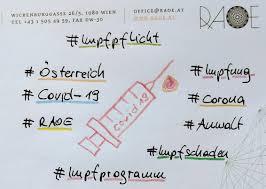 WICKENBURGGASSE 26/5, 1080 WIEN
TEL +43 1 505 49 59, FAX DW-50
OFFICE@RAOE.AT
WWW.RAOE.AT
RAOE
#Impfpflicht
#Österreich
#Impfung
#Covid-19
#Corona
#RAOE
Covid 19
#Anwalt
#Impfschaden
#Impfprogramm